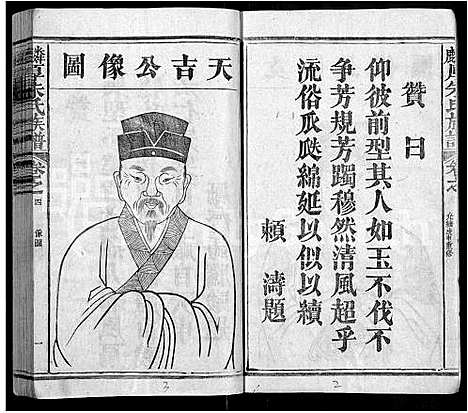 麟厚朱氏族譜
卷之
贊曰
仰彼前型其人如玉不伐不
争芳規芳躅穆然清風超乎
流俗瓜瓞綿延以似以續
頼濤題
2
天吉公像圖
麟厚朱氏族譜
卷之四
像圖
一
3